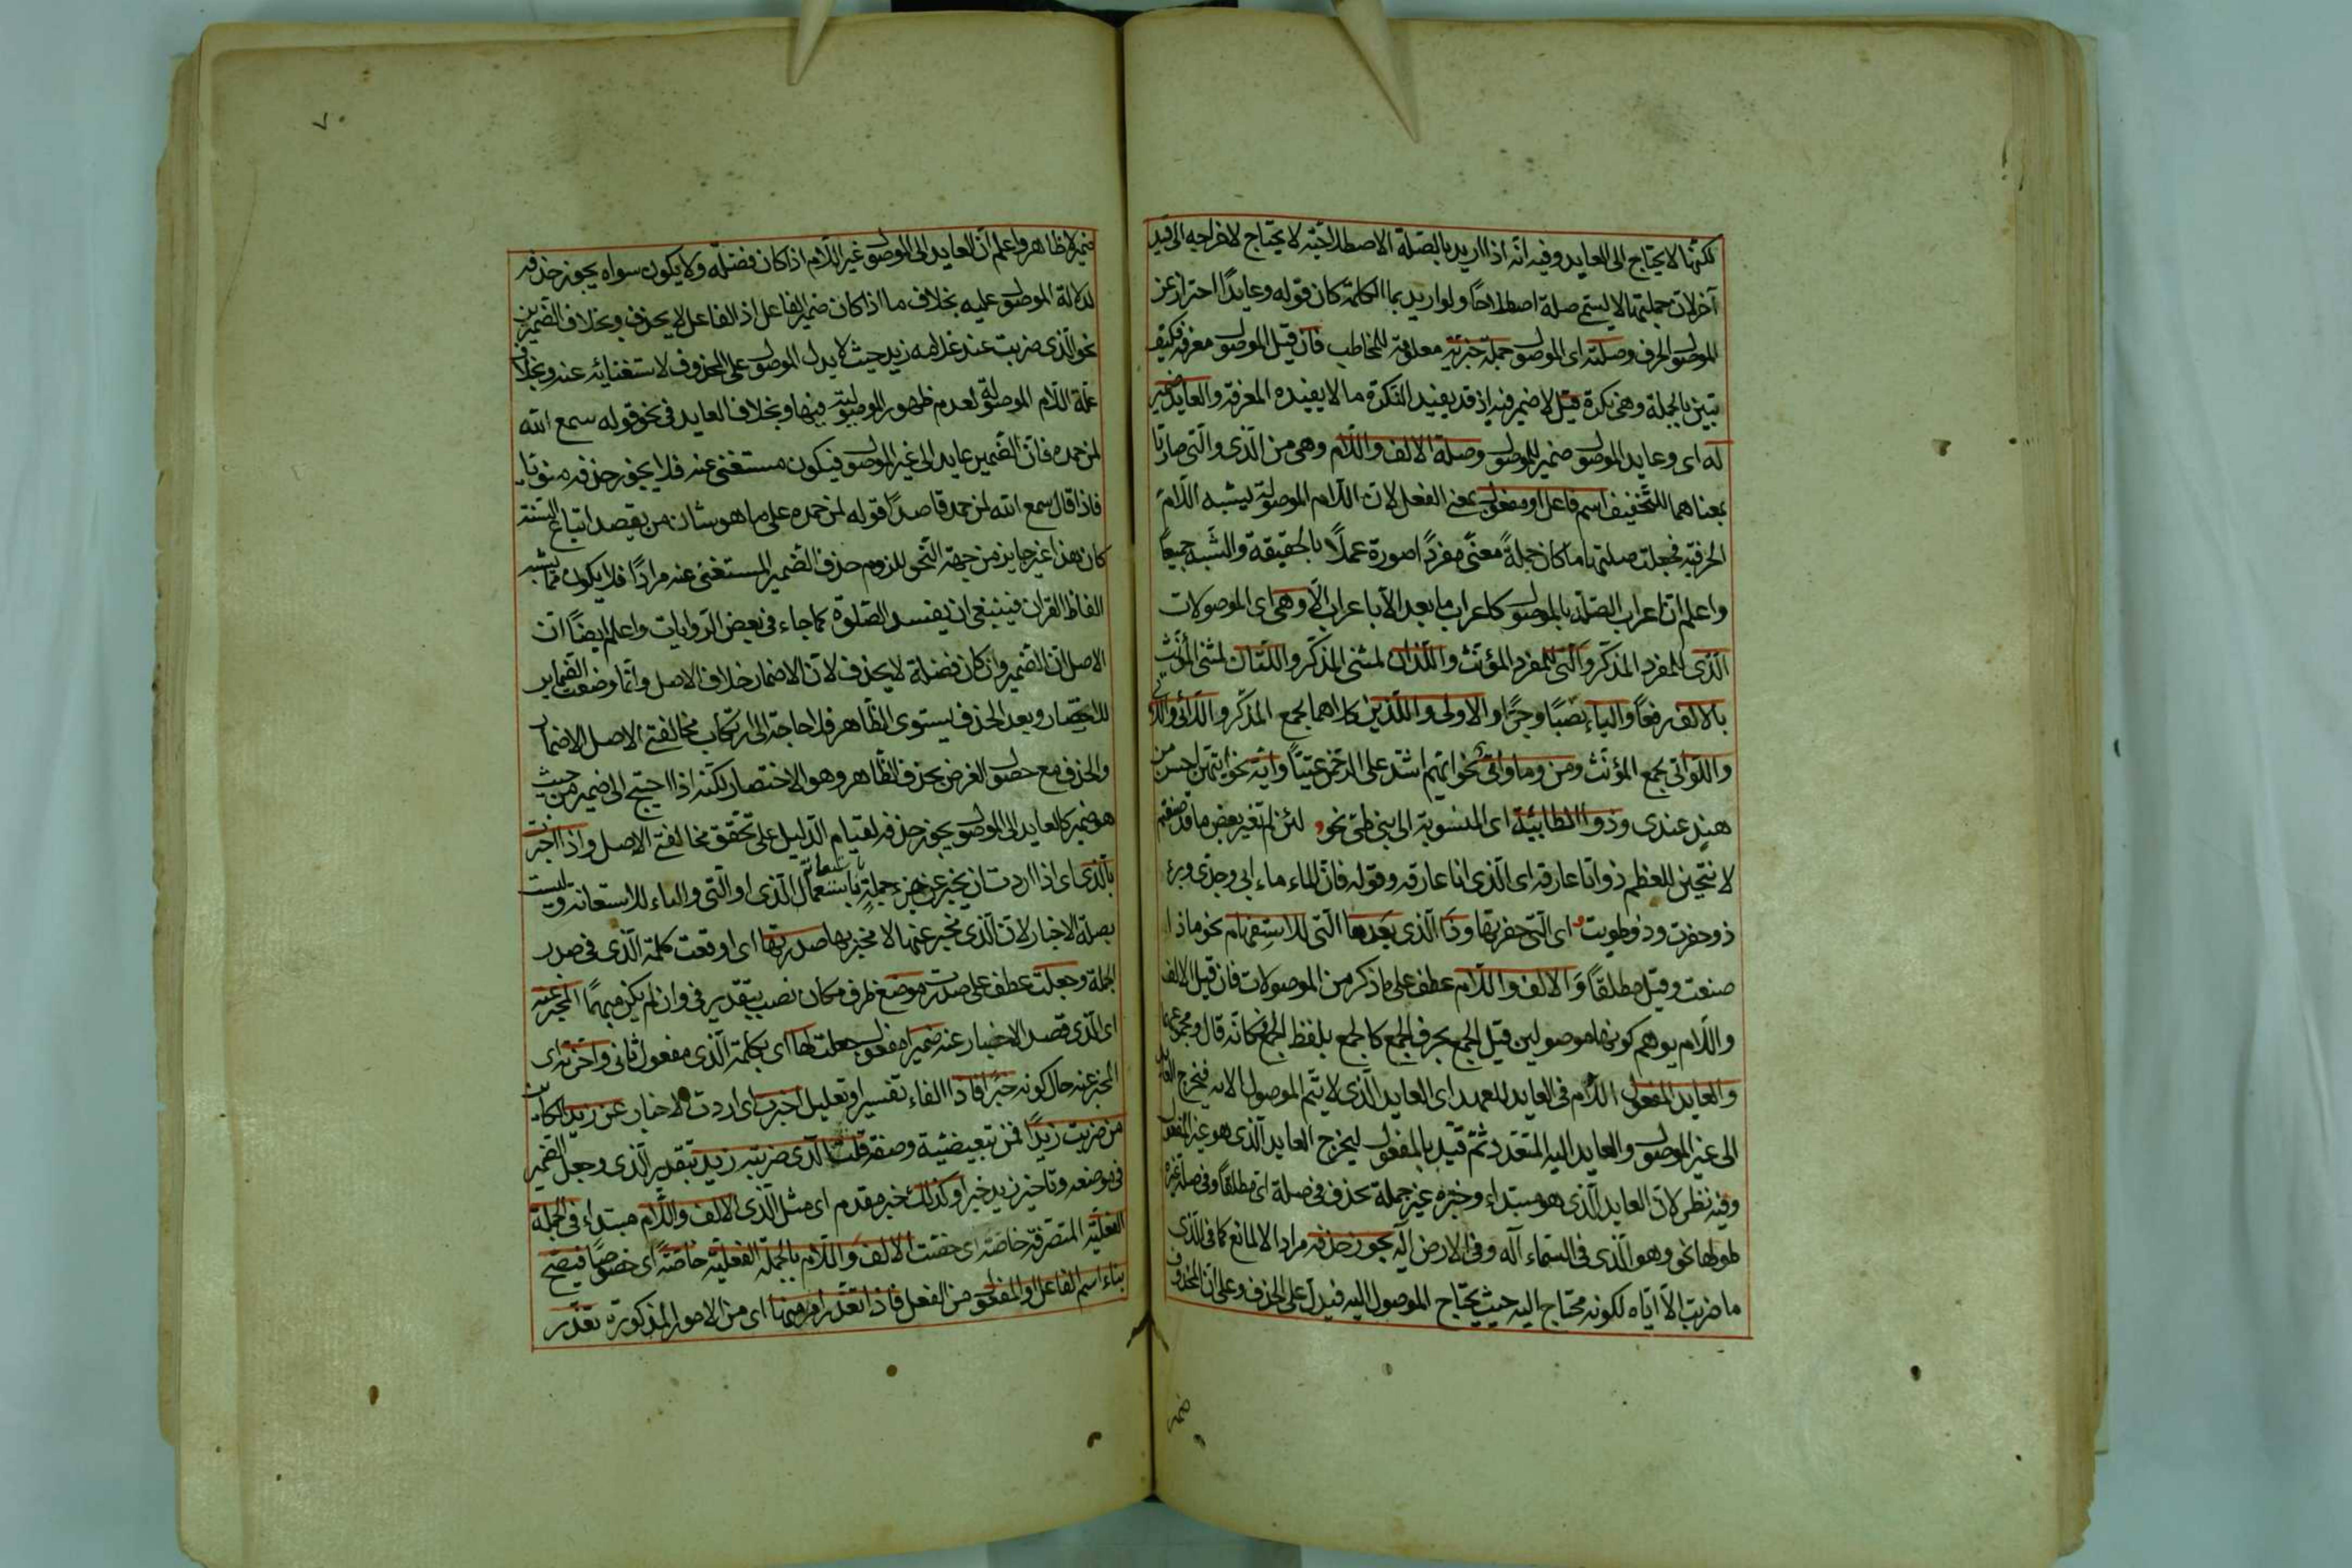 لكنّها لا يحتاج الى العايد وفيه انّه اذا اريد بالصّلة الاصطلاحيّة لا يحتاج لاخراجه الى قيد
آخر لانّ جملتها لا يسمّى صلة اصطلاحًا ولو اريد بما الكلمة كان قوله وعايدًا احتراز عن
الموصول الحرف وصلته اى الموصول جملة خبريّة معلومة للمخاطب فان قيل الموصول معرفة فكيف
تبيّن بالجملة وهى نكرة قيل لا ضير فيه اذ قد يفيد النكرة ما لا يفيده المعرفة والعايد ضمير
له اى وعايد الموصول ضمير للموصول وصلة الالف واللّام وهى من الّذى والّتى صارتا
بمعناهما للتخفيف اسم فاعل او مفعول بمعنى الفعل لانّ اللّام الموصولة ليشبه اللّام
الحرفيّة فجعلت صلتها ما كان جملةً معنًى مفردًا صورة عملًا بالحقيقة والشبه جميعًا
واعلم انّ اعراب الصّلة بالموصول كاعراب ما بعد الّا باعراب الّا وهى اى الموصولات
الّذى للمفرد المذكّر والّتى للمفرد المؤنّث واللّذان لمثنى المذكّر واللّتان لمثنى المؤنّث
بالالف رفعًا والياء نصبًا وجرًّا والاولى والّذين كلاهما لجمع المذكّر واللّائى واللّاتى
واللّواتى لجمع المؤنّث ومن وما واىّ نحو ايّهم اشدّ على الرّحمن عتيًّا وايّة نحو ايّتهنّ احسن من
هند عندى وذو الطائيّة اى المنسوبة الى بنى طىّ نحو لئن لم تغيّر بعض ما قد صنعتم
لانتحين للعظم ذو انا عارقه اى الّذى انا عارقه وقوله فانّ الماء ماء ابى وجدّى وبئرى
ذو حفرت وذو طويت اى الّتى حفرتها وذا الّذى بعد ما الّتى للاستفهام نحو ماذا
صنعت وقيل مطلقًا والالف واللّام عطف على ما ذكر من الموصولات فان قيل الالف
واللّام يوهم كونهما موصولين قيل الجمع بحرف الجمع كالجمع بلفظ الجمع فكانّه قال ومجموعهما
والعايد المفعول اللّام فى العايد للعهد اى العايد الّذى لا يتمّ الموصول الا به فيخرج العايد
الى غير الموصول والعايد اليه المتعدّد ثمّ قيّد بالمفعول ليخرج العايد الّذى هو غير المفعول
وفيه نظر لانّ العايد الّذى هو مبتداء وخبره غير جملة يحذف فى صلة اىّ مطلقًا وفى صلة غيره
طولها نحو وهو الّذى فى السّماء اله وفى الارض اله يجوز حذفه مرادا الا لمانع كما فى الّذى
ما ضربت الّا ايّاه لكونه محتاج اليه حيث يحتاج الموصول اليه فيدلّ على الحذف وعلى انّ المحذوف
٧٠
ضمير لا ظاهر واعلم انّ العايد الى الموصول غير اللّام اذا كان فضلة ولا يكون سواه يجوز حذفه
لدلالة الموصول عليه بخلاف ما اذا كان ضمير الفاعل اذ الفاعل لا يحذف وبخلاف الضميرين
نحو الّذى ضربت عند غلامه زيد حيث لا يدلّ الموصول على المحذوف لاستغنائه عنه وبخلاف
صلة اللّام الموصولة لعدم ظهور الموصوليّة فيها وبخلاف العايد فى نحو قوله سمع الله
لمن حمده فانّ الضّمير عايد الى غير الموصول فيكون مستغنى عنه فلا يجوز حذفه منويّا
فاذا قال سمع الله لمن حمد قاصدًا قوله لمن حمده على ما هو شان من يقصد اتباع السّنة
كان هذا غير جايز من جهة النّحو للزوم حذف الضّمير المستغنى عنه مرادًا فلا يكون ممّا يشبه
الفاظ القران فينبغى ان يفسد الصّلوة كما جاء فى بعض الرّوايات واعلم ايضًا انّ
الاصل انّ الضّمير وان كان فضلة لا يحذف لانّ الاضمار خلاف الاصل وانّما وضعت الضّماير
للاختصار وبعد الحذف يستوى الظّاهر فلا حاجة الى ارتكاب مخالفتى الاصل الاضمار
والحذف مع حصول الغرض بحذف الظّاهر وهو الاختصار لكنّه اذا احتيج الى ضمير من حيث
هو ضمير كالعايد الى الموصول يجوز حذفه لقيام الدّليل على تحقق مخالفتى الاصل واذا اخبرت
بالّذى اى اذا اردت ان يخبر عن جزء جملةٍ باستعمال الّذى او الّتى والباء للاستعانة وليست
بصلة الاخبار لانّ الّذى مخبر عنها لا مخبر بها صدّرتها اى اوقعت كلمة الّذى فى صدر
الجملة وجعلت عطف على صدّرت موضع ظرف مكان نصب بتقدير فى وان لم يكن مبهمًا المخبر عنه
اى الّذى قصد الاخبار عنه ضميرا مفعول جعلت لها اى لكلمة الّذى مفعول ثانى واخّرته اى
المخبر عنه حال كونه خبرًا فاذا الفاء تفسير او تعليل اخبرت اى اردت الاخبار عن زيد الكاين
من ضربت زيدًا فمن تبعيضيّة وصفة قلت الّذى ضربته زيد بتقدير الّذى وجعل الضمير
فى موضعه وتاخير زيد خبرا وكذلك خبر مقدم اى مثل الّذى الالف واللّام مبتداء فى الجملة
الفعليّة المتصرفة خاصّة اى خصّت الالف واللّام بالجملة الفعليّة خاصّةً اى خصوصًا فيصحّ
بناء اسم الفاعل او المفعول من الفعل فاذا تعذّر امر منها اى من الامور المذكورة تعذّر